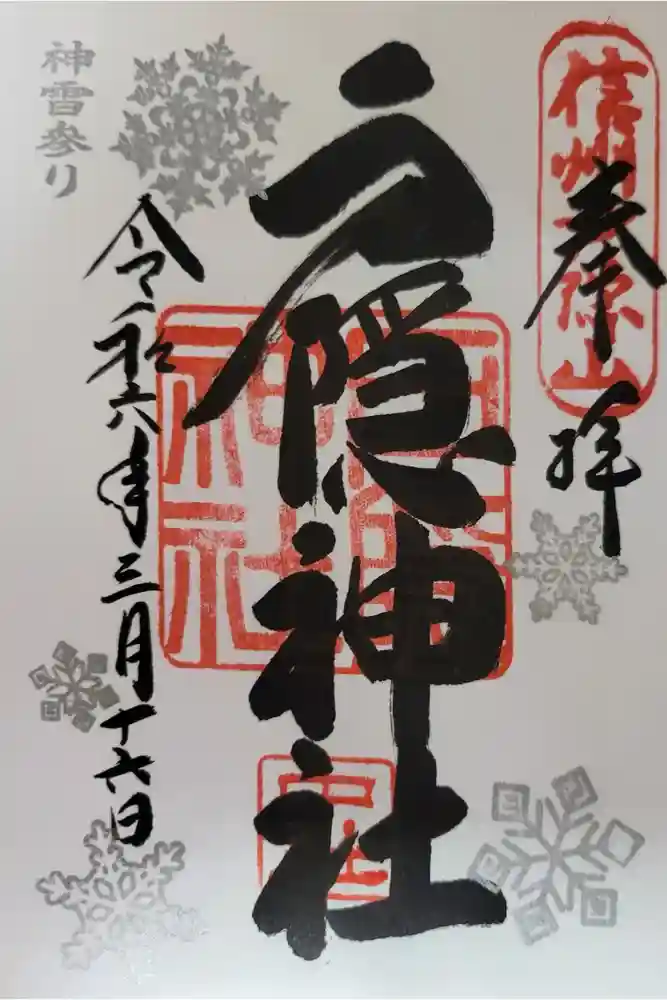 信州戸隠山
奉拝
戸隠神社
戸隠神社
中社
令和六年三月十六日
神雪参り